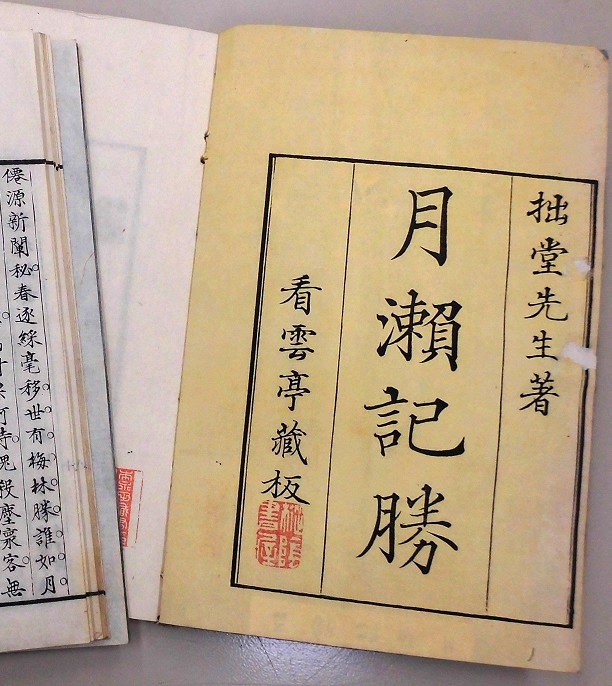 拙堂先生著
月瀨記勝
看雲亭藏板
僊源新闢秘春逐綵毫移世有梅林勝誰如月